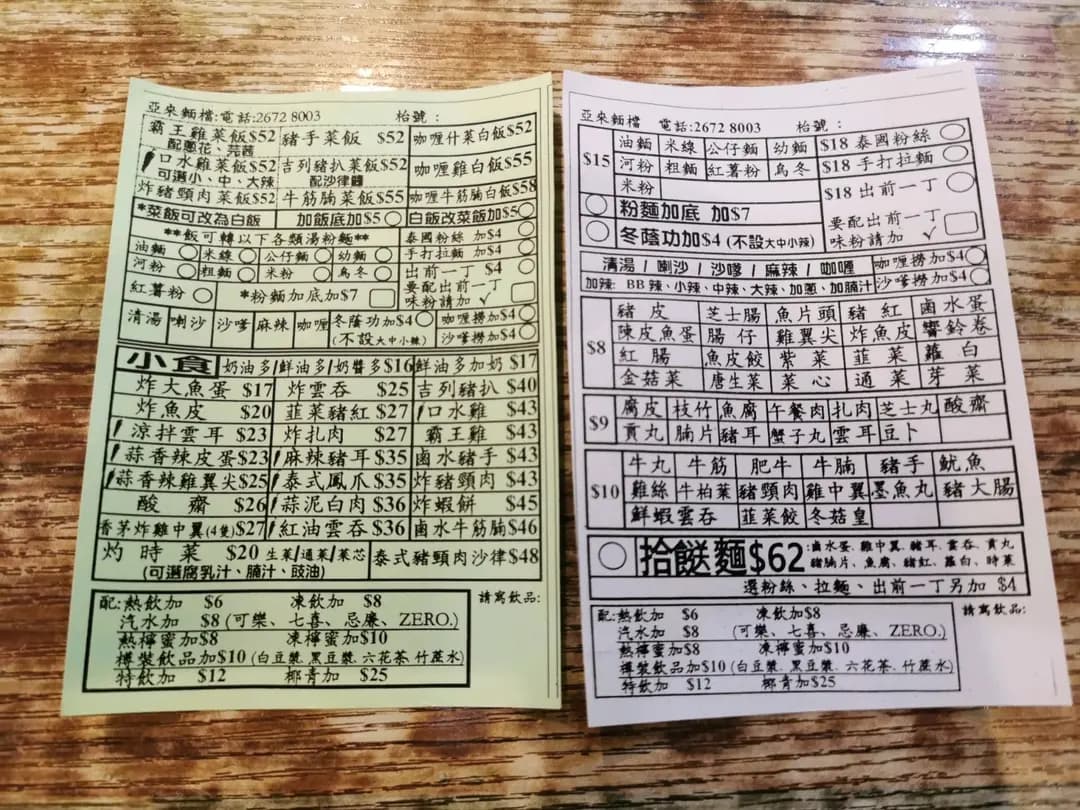 亞來麵檔:電話:2672 8003 枱號：
霸王雞菜飯$52 豬手菜飯 $52 咖喱什菜白飯$52
配蔥花、芫茜
口水雞菜飯$52 吉列豬扒菜飯$52 咖喱雞白飯$55
可選小、中、大辣 配沙律醬
炸豬頸肉菜飯$52 牛筋腩菜飯$55 咖喱牛筋腩白飯$58
*菜飯可改為白飯 加飯底加$5 白飯改菜飯加$5
**飯可轉以下各類湯粉麵** 泰國粉絲 加$4
油麵 米線 公仔麵 幼麵 手打拉麵 加$4
河粉 粗麵 米粉 烏冬 出前一丁 $4
紅薯粉 *粉麵加底加$7 要配出前一丁
味粉請加 ✓
清湯 喇沙 沙嗲 麻辣 咖喱 冬蔭功加$4 咖喱撈加$4
(不設大中小辣) 沙嗲撈加$4
小食 奶油多/鮮油多/奶醬多$16 鮮油多加奶 $17
炸大魚蛋 $17 炸雲吞 $25 吉列豬扒 $40
炸魚皮 $20 韮菜豬紅 $27 口水雞 $43
涼拌雲耳 $23 炸扎肉 $27 霸王雞 $43
蒜香辣皮蛋$23 麻辣豬耳 $35 鹵水豬手 $43
蒜香辣雞翼尖$25 泰式鳳爪 $35 炸豬頸肉 $43
酸齋 $26 蒜泥白肉 $36 炸蝦餅 $45
香茅炸雞中翼(4隻)$27 紅油雲吞 $36 鹵水牛筋腩$46
灼時菜 $20 生菜/通菜/菜芯 泰式豬頸肉沙律$48
(可選腐乳汁、腩汁、豉油)
配:熱飲加 $6 凍飲加 $8 請寫飲品:
汽水加 $8 (可樂、七喜、忌廉、ZERO.)
熱檸蜜加$8 凍檸蜜加$10
樽裝飲品加$10 (白豆漿.黑豆漿.六花茶.竹蔗水)
特飲加 $12 椰青加 $25
亞來麵檔 電話:2672 8003 枱號：
$15 油麵 米線 公仔麵 幼麵 $18 泰國粉絲
河粉 粗麵 紅薯粉 烏冬 $18 手打拉麵
米粉 $18 出前一丁
粉麵加底 加$7 要配出前一丁
冬蔭功加$4 (不設大中小辣) 味粉請加 ✓
清湯 / 喇沙 / 沙嗲 / 麻辣 / 咖喱 咖喱撈加$4
加辣: BB辣、小辣、中辣、大辣、加蔥、加腩汁 沙嗲撈加$4
$8 豬皮 芝士腸 魚片頭 豬紅 鹵水蛋
陳皮魚蛋 腸仔 雞翼尖 炸魚皮 響鈴卷
紅腸 魚皮餃 紫菜 韮菜 蘿白
金菇菜 唐生菜 菜心 通菜 芽菜
$9 腐皮 枝竹 魚腐 午餐肉 扎肉 芝士丸 酸齋
貢丸 腩片 豬耳 蟹子丸 雲耳 豆卜
$10 牛丸 牛筋 肥牛 牛腩 豬手 魷魚
雞絲 牛柏葉 豬頸肉 雞中翼 墨魚丸 豬大腸
鮮蝦雲吞 韮菜餃 冬菇皇
拾餸麵$62 :鹵水蛋、雞中翼、豬耳、雲吞、貢丸
豬腩片、魚腐、豬紅、蘿白、時菜
選粉絲、拉麵、出前一丁另加 $4
配:熱飲加 $6 凍飲加$8 請寫飲品:
汽水加 $8 (可樂、七喜、忌廉、ZERO.)
熱檸蜜加$8 凍檸蜜加$10
樽裝飲品加$10 (白豆漿.黑豆漿.六花茶.竹蔗水)
特飲加 $12 椰青加$25